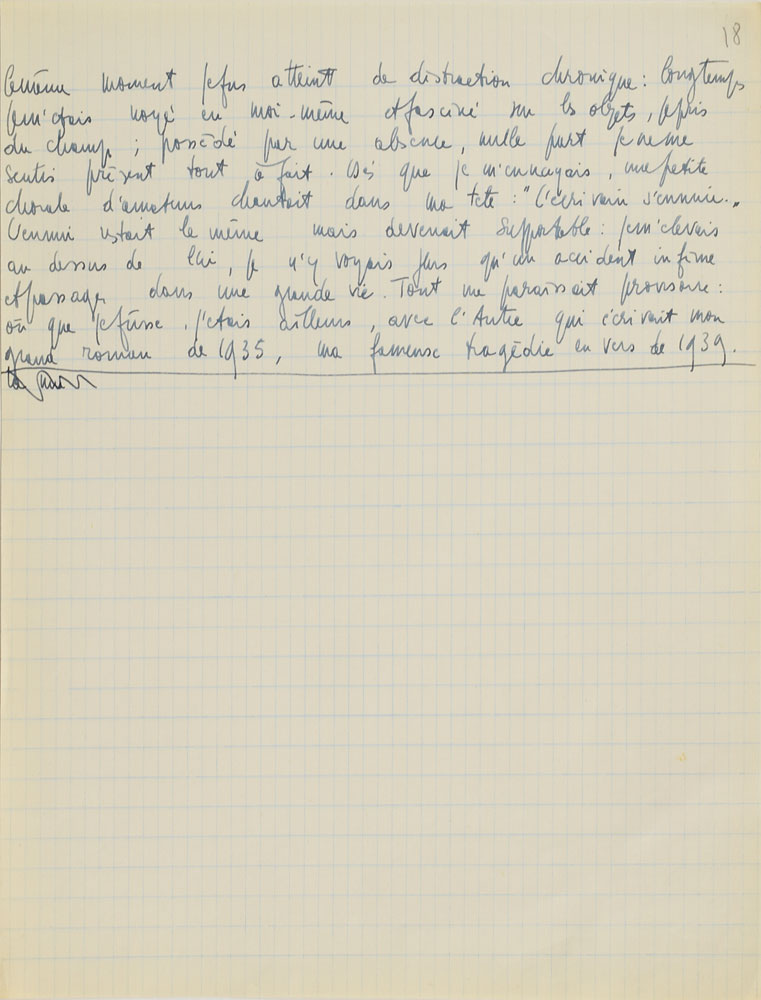 18
le même moment je fus atteint de distraction chronique : longtemps
je m'étais noyé en moi-même et fasciné sur les objets, je pris
du champ ; possédé par une absence, nulle part je ne me
sentis présent tout à fait. Dès que je m'ennuyais, une petite
chorale d'amateurs chantait dans ma tête : "L'écrivain s'ennuie."
L'ennui restait le même mais devenait supportable : je m'élevais
au dessus de lui, je n'y voyais plus qu'un accident infime
et passager dans une grande vie. Tout me paraissait provisoire :
où que je fusse j'étais ailleurs, avec l'Autre qui écrivait mon
grand roman de 1935, ma fameuse tragédie en vers de 1939.